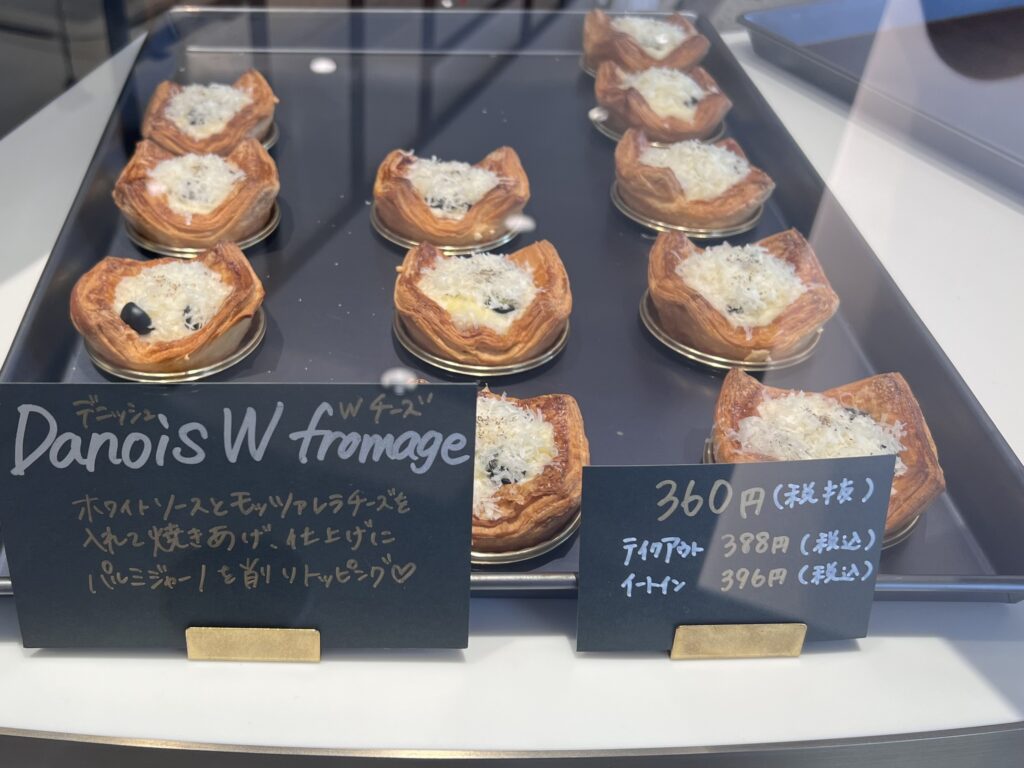 デニッシュ Wチーズ
Danois W fromage
ホワイトソースとモッツァレラチーズを
入れて焼きあげ、仕上げに
パルミジャーノを削りトッピング♡
360円(税抜)
テイクアウト 388円(税込)
イートイン 396円(税込)